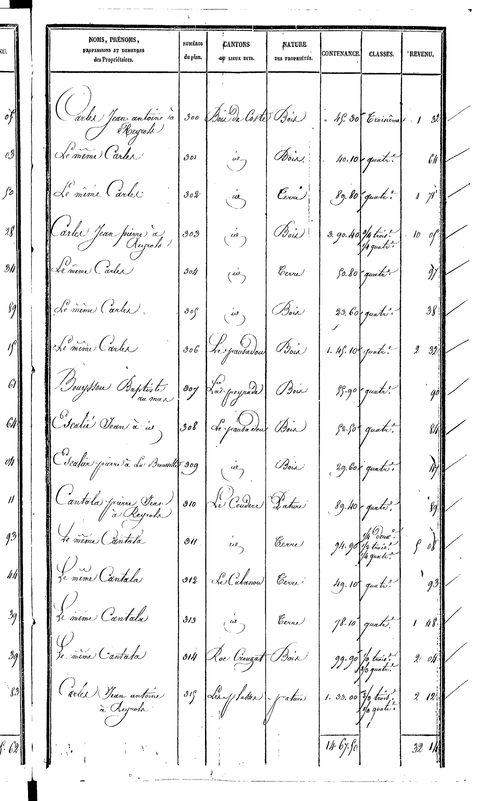 NOMS, PRÉNOMS, PROFESSIONS ET DEMEURES des Propriétaires. NUMÉRO du plan. CANTONS ou LIEUX DITS. NATURE DES PROPRIÉTÉS. CONTENANCE. CLASSES. REVENU.
Carles Jean antoine à Reyrols 300 Bois 45.30 Troisième 1 32
Le même Carles 301 id Bois 40.10 quatr.e 64
Le même Carles 302 id Terre 89.80 quatr.e 1 78
Carles Jean pierre à Reyrols 303 id Bois 3.90.40 10 05
Le même Carles 304 id Terre 50.80 quatr.e 97
Le même Carles 305 id Bois 23.60 quatr.e 38
Le même Carles 306 Le paubadou Bois 1.45.10 quatr.e 2 32
Bouyssou Baptiste au mas 307 La peyrade Bois 55.90 quatr.e 90
Escalié Jean à id 308 Le paubadou Bois 52.50 quatr.e 84
Escalié pierre à La 309 id Bois 29.60 quatr.e 47
Cantala pierre Jean à Reyrols 310 Le Couderc Pature 89.40 quatr.e 89
Le même Cantala 311 id Terre 94.90 5 08
Le même Cantala 312 Le Cabanou Terre 49.10 quatr.e 93
Le même Cantala 313 id Terre 78.10 quatr.e 1 48
Le même Cantala 314 Roc Bois 99.90 2 04
Carles Jean antoine à Reyrols 315 Les pature 1.33.00 2 12
14.67.50 32 14